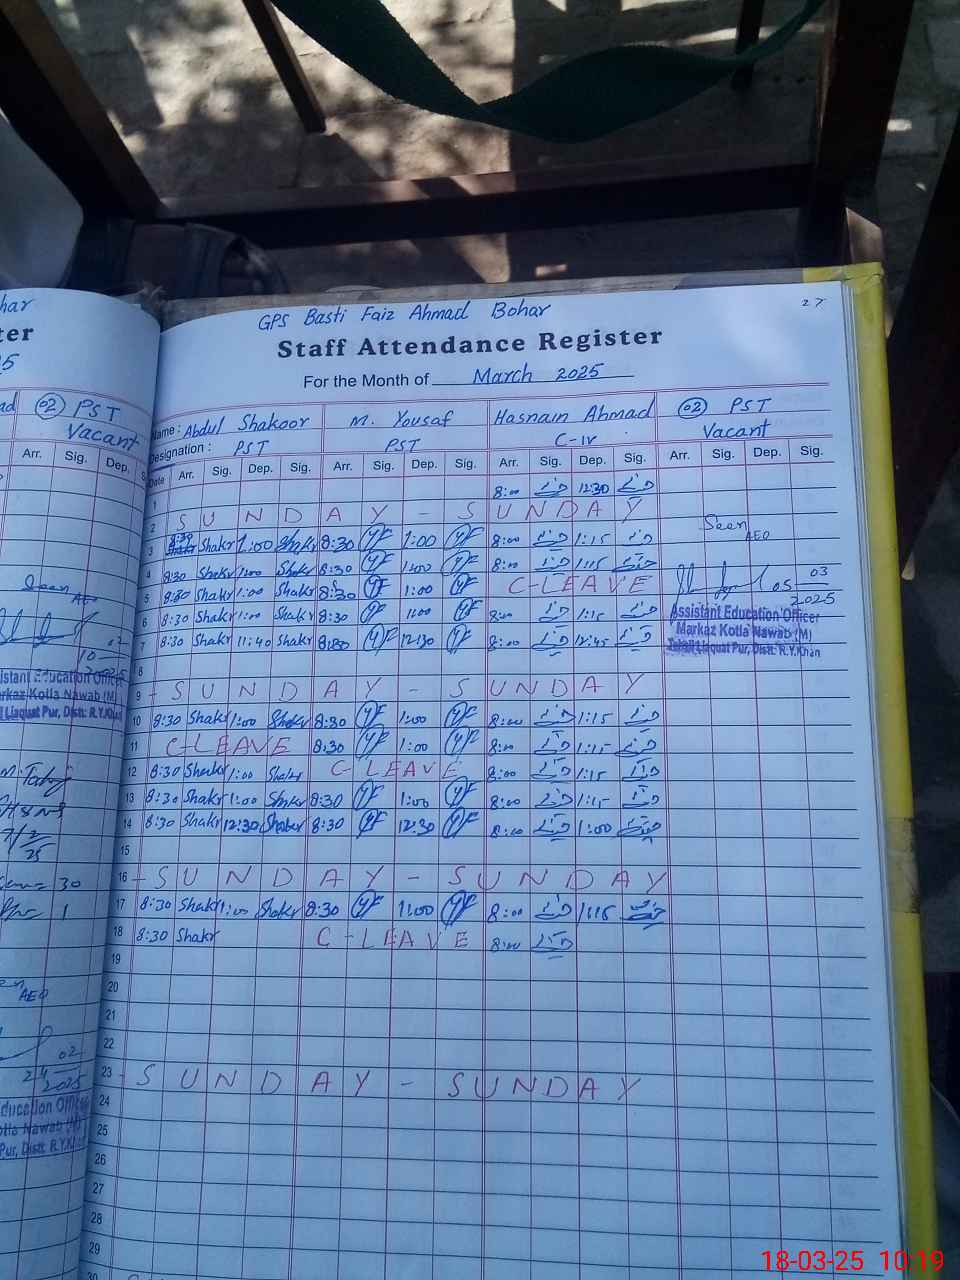 har
ter
5
ad 02 PST
Vacant
Arr. Sig. Dep.
Seen
AEO
02
10
istant Education Officer
rkaz Kotla Nawab (M)
l Liaquat Pur, Distt: R.Y.Khan
25
30
1
AEO
02
24
2025
ducation Officer
otla Nawab (M)
Pur, Distt: R.Y.Khan
27
GPS Basti Faiz Ahmad Bohar
Staff Attendance Register
For the Month of March 2025
Name : Abdul Shakoor M. Yousaf Hasnain Ahmad 02 PST
Designation : PST PST C-IV Vacant
Date Arr. Sig. Dep. Sig. Arr. Sig. Dep. Sig. Arr. Sig. Dep. Sig. Arr. Sig. Dep. Sig.
1 8:00 12:30
2 SUNDAY - SUNDAY
3 8:30 Shakr 1:00 Shakr 8:30 YF 1:00 YF 8:00 1:15
Seen
AEO
4 8:30 Shakr 1:00 Shakr 8:30 YF 1:00 YF 8:00 1:15
5 8:30 Shakr 1:00 Shakr 8:30 YF 1:00 YF C-LEAVE
05 03
2025
6 8:30 Shakr 1:00 Shakr 8:30 YF 1:00 YF 8:00 1:15
7 8:30 Shakr 11:40 Shakr 8:30 YF 12:30 YF 8:00 12:45
Assistant Education Officer
Markaz Kotla Nawab (M)
Tehsil Liaquat Pur, Distt: R.Y.Khan
8
9 - SUNDAY - SUNDAY
10 8:30 Shakr 1:00 Shakr 8:30 YF 1:00 YF 8:00 1:15
11 C-LEAVE 8:30 YF 1:00 YF 8:00 1:15
12 8:30 Shakr 1:00 Shakr C-LEAVE 8:00 1:15
13 8:30 Shakr 1:00 Shakr 8:30 YF 1:00 YF 8:00 1:15
14 8:30 Shakr 12:30 Shakr 8:30 YF 12:30 YF 8:00 1:00
15
16 - SUNDAY - SUNDAY
17 8:30 Shakr 1:00 Shakr 8:30 YF 1:00 YF 8:00 1:15
18 8:30 Shakr C-LEAVE 8:00
19
20
21
22
23 - SUNDAY - SUNDAY
24
25
26
27
28
29
30
18-03-25 10:19